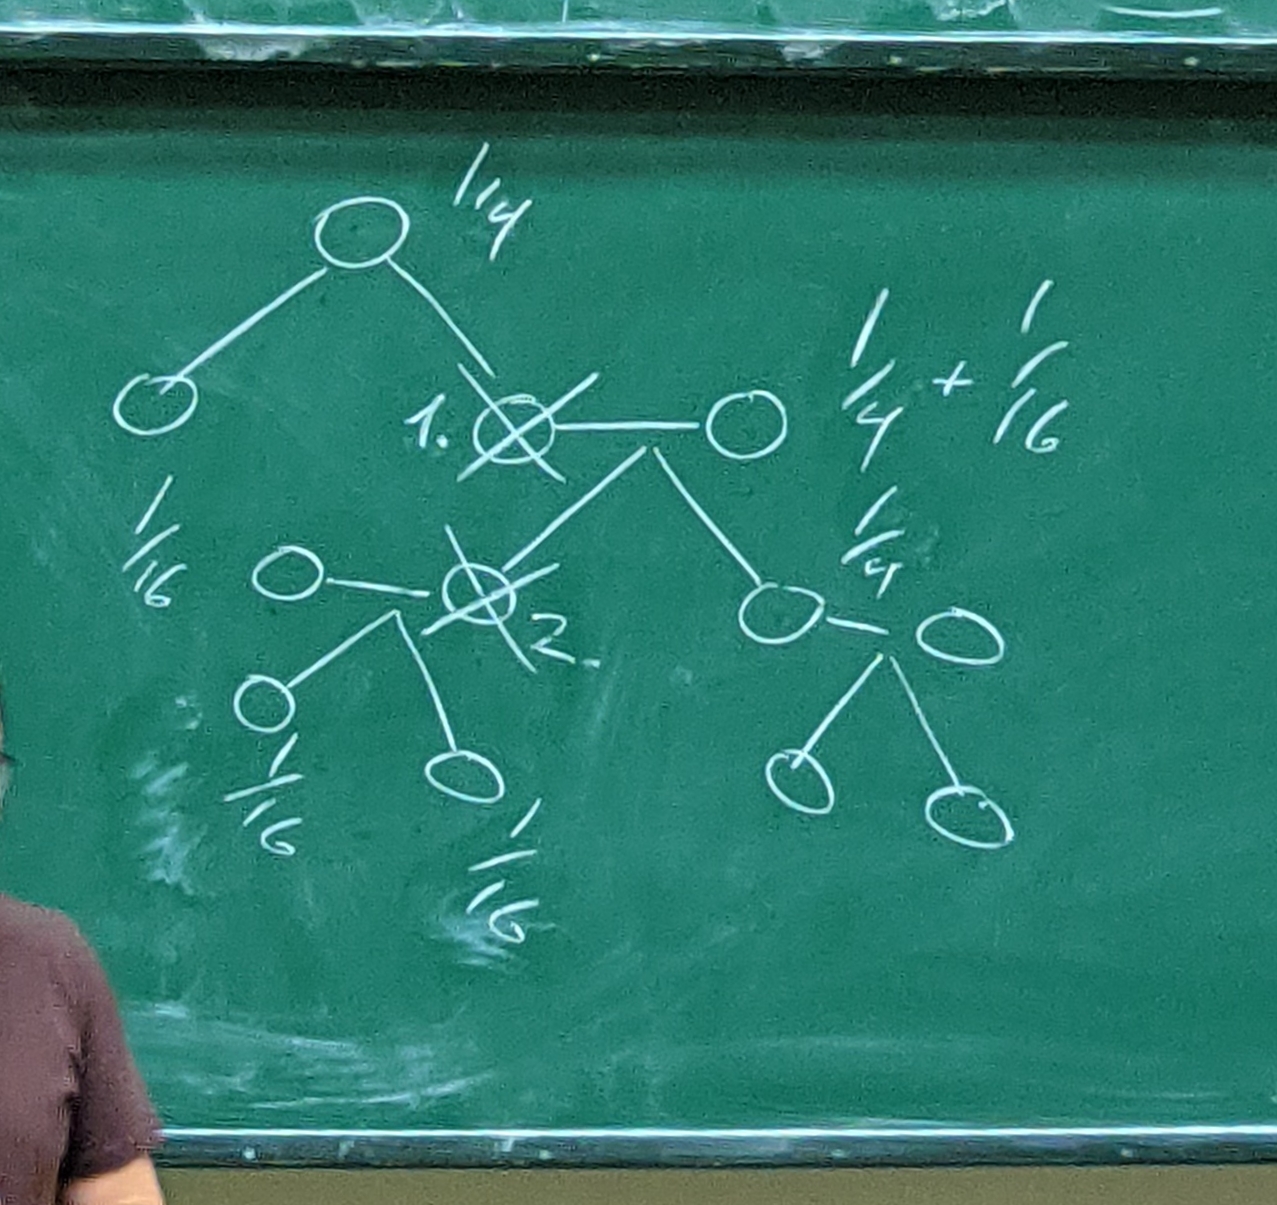 1/4
1/4 + 1/16
1.
1/16
1/4
2.
1/16
1/16